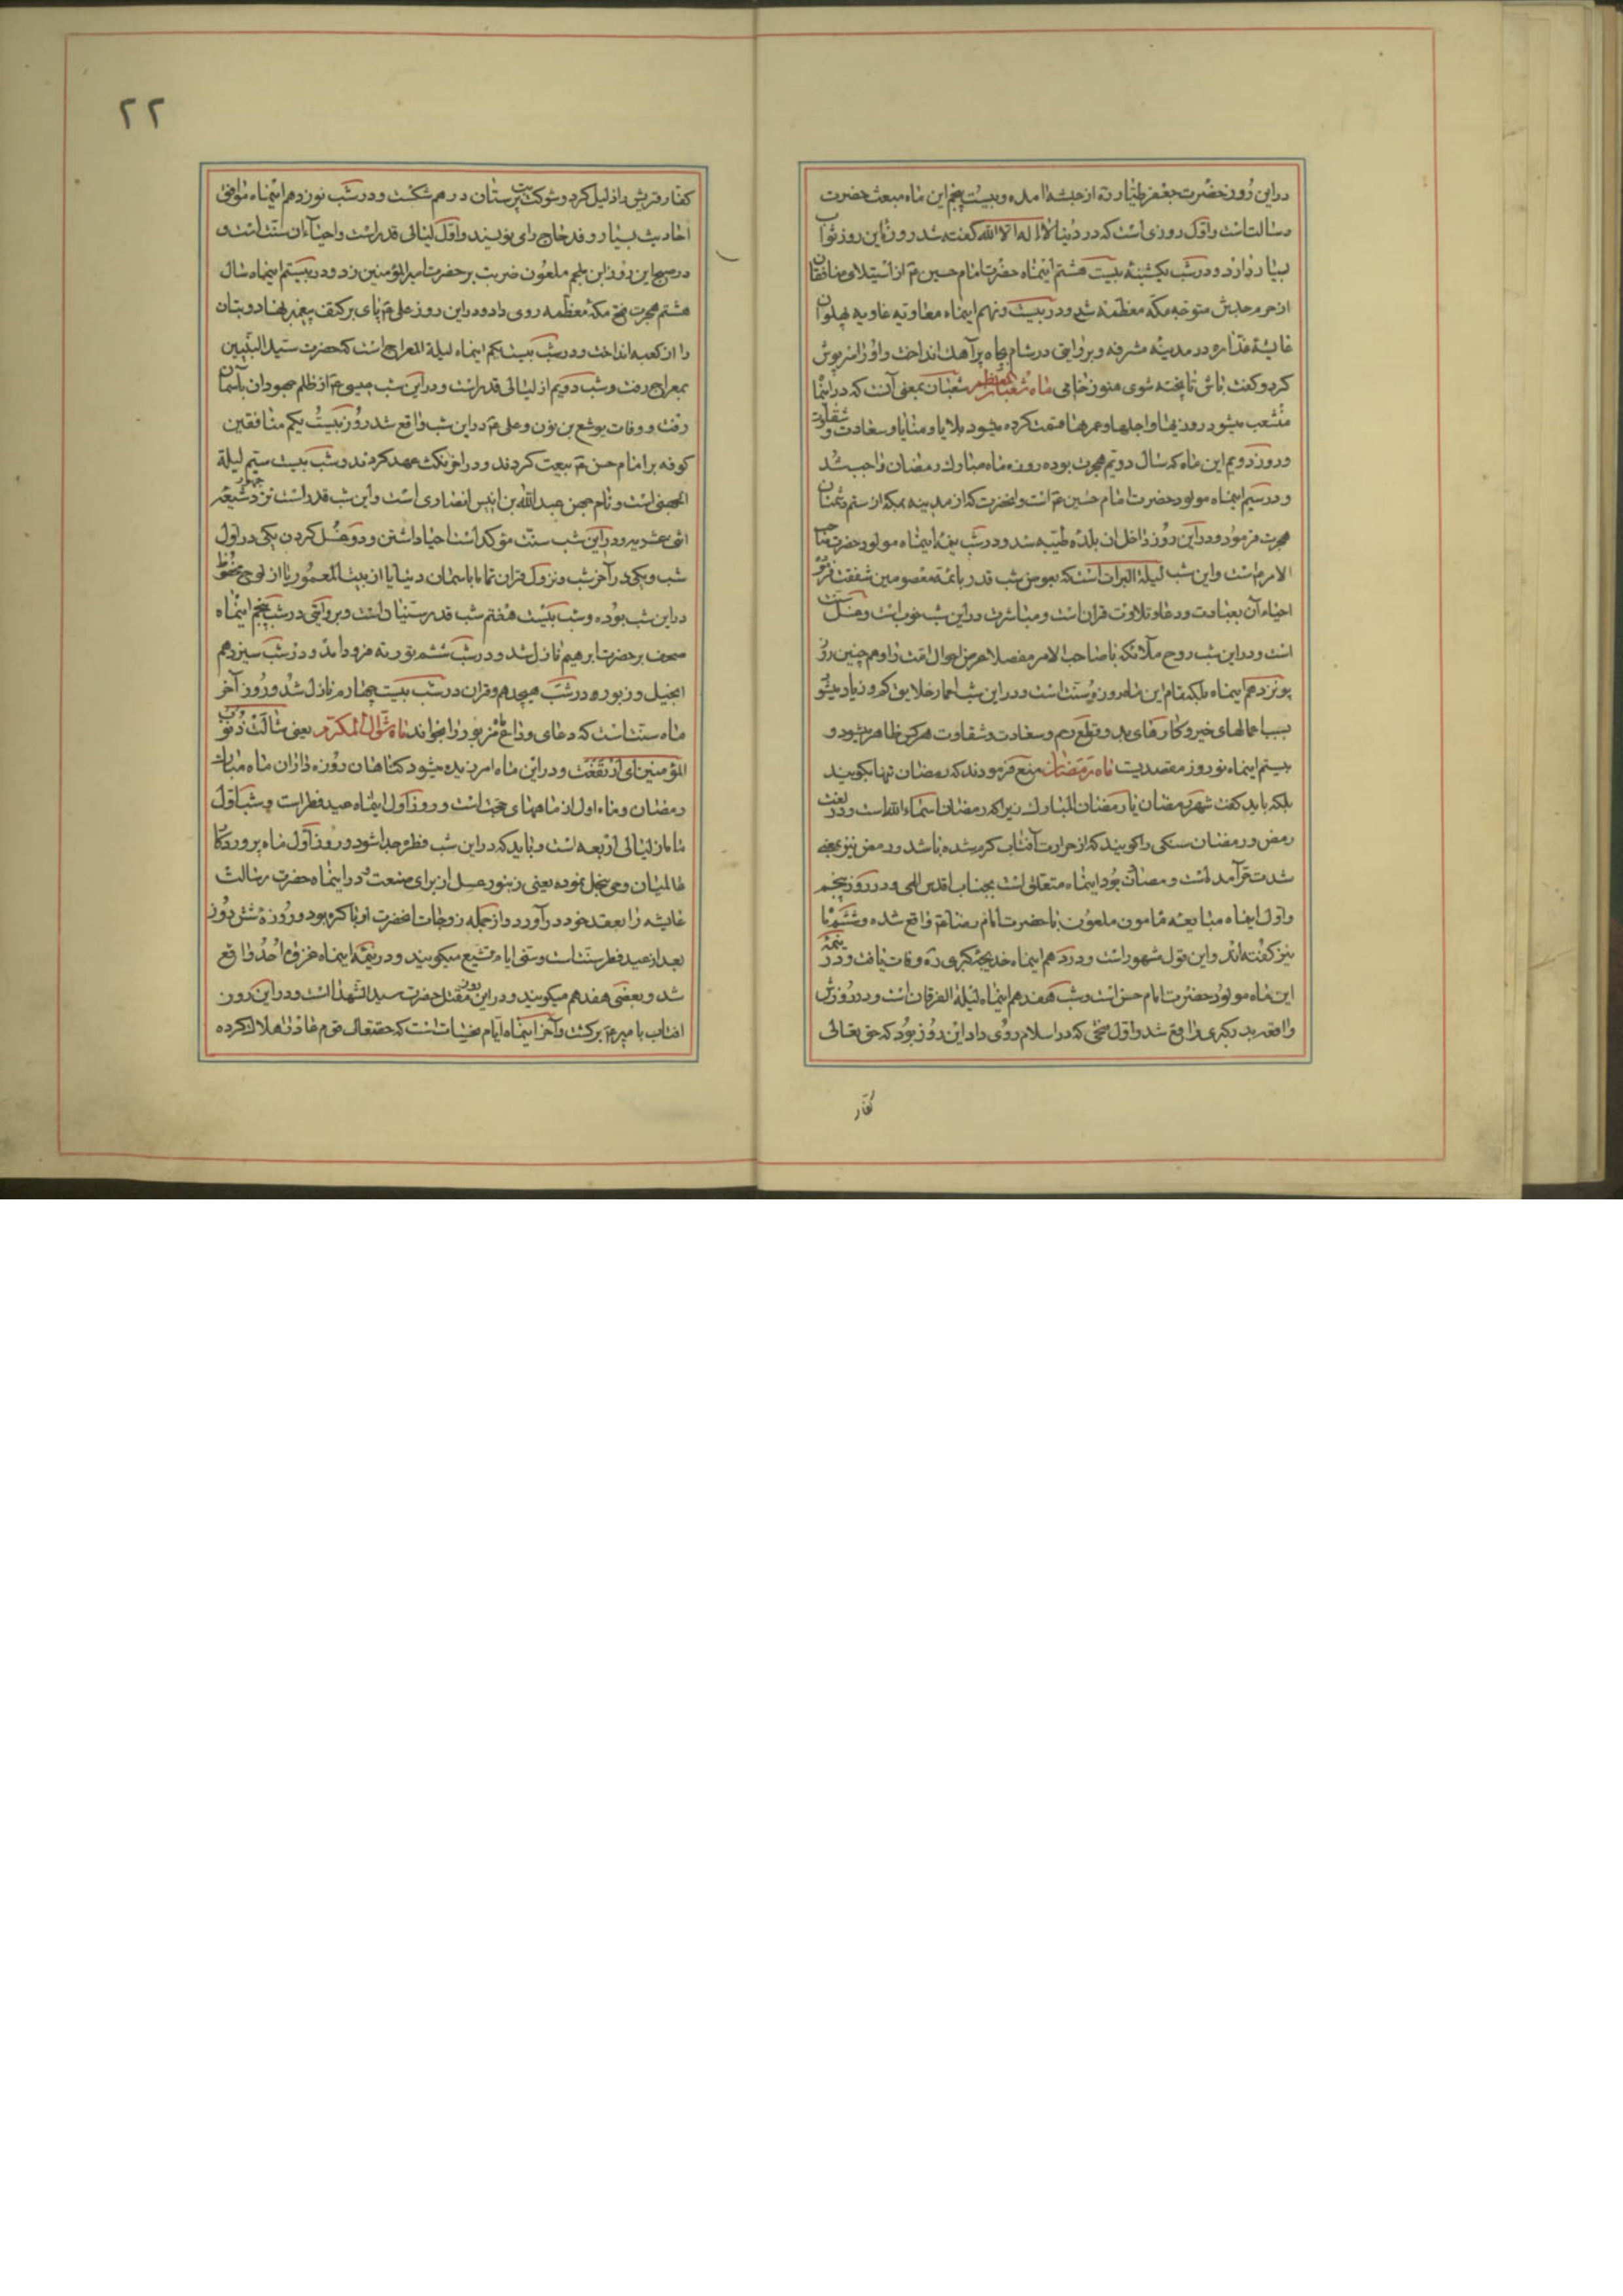 دراین روز حضرت جعفر طیار رَه از حبشه آمده و بیست پنجم این ماه مبعث حضرت
رسالتست و اول روزی است که در دنیا لا اله الا الله گفته شد روزه این روز ثواب
بسیار دارد و در شب یکشنبهٔ بیست هشتم اینماه حضرت امام حسین ع از استیلای منافقان
از حرم جدش متوجه مکه معظمه شد و در بیست و نهم اینماه معاویه غاویه پهلوان
عایشه غداره در مدینه مشرفه و بروایتی در شام چاه پر آهک انداخت و او را سرپوش
کرد و گفت باش تا پخته شوی هنوز خامی ماه شعبان المعظم شعبان بمعنی آنست که در اینماه
منشعب میشود روزیها و اجلها و عمرها قسمت کرده میشود بلایا و منایا و سعادت و شقاوت
و روز دویم این ماه که سال دویم هجرت بوده روزه ماه مبارک رمضان واجب شد
و در سیم اینماه مولود حضرت امام حسین ع است و آنحضرت که از مدینه بمکه از ستم دشمنان
هجرت فرمود و در این روز داخل آن بلده طیبه شد و در شب نیمه اینماه مولود حضرت صاحب
الامر است و این شب لیلة البرات است که بعوض شب قدر بائمه معصومین شفقت فرموده
احیاء آن بعبادت و دعا و تلاوت قران است و مباشرت در این شب خوب است و غسل سنت
است و در این شب روح ملائکه با صاحب الامر مفصلا عرض احوال امت را و همچنین روز
پونزدهم اینماه بلکه تمام این ماه روزه سنت است و در این شب اعمار خلایق کم و زیاد میشود
بسبب عملهای خیر و کارهای بد و قطع رحم و سعادت و شقاوت هر کس ظاهر میشود و
بیستم اینماه نوروز معتضدیست ماه رمضان منع فرمودند که رمضان تنها بگویند
بلکه باید گفت شهر رمضان یا رمضان المبارک زیرا که رمضان اسماء الله است و در لغت
رمض و رمضان سنگی را گویند که از حرارت آفتاب گرم شده باشد و رمض نیز بمعنی
شدت گرما آمده است و رمضان بود اینماه متعلق است بجناب اقدس الهی و در روز پنجم
و اول اینماه مبایعه مامون ملعون با حضرت امام رضا ع واقع شده و ششم را
نیز گفته‌اند و این قول مشهور است و در دهم اینماه خدیجه کبری رَه وفات یافت و در نیمهٔ
این ماه مولود حضرت امام حسن است و شب هفدهم اینماه لیلة الفرقان است و در روزش
واقعه بدر کبری واقع شد و اول فتحی که در اسلام روی داد این روز بود که حق تعالی
کفار
۲۲
کفار قریش را ذلیل کرد و شوکت بت پرستان درهم شکست و در شب نوزدهم اینماه موافق
احادیث بسیار وفد حاج را می نویسند و اول لیالی قدر است و احیاء آن سنت است و
در صبح این روز ابن ملجم ملعون ضربت بر حضرت امیر المؤمنین زد و در بیستم اینماه سال
هشتم هجرت فتح مکه معظمه روی داد و در این روز علی ع پای بر کتف پیغمبر نهاد و بتان
را از کعبه انداخت و در شب بیست یکم اینماه لیلة المعراج است که حضرت سید النبیین
بمعراج رفت و شب دویم از لیالی قدر است و در این شب عیسی ع از ظلم جهودان بآسمان
رفت و وفات یوشع بن نون و علی ع در این شب واقع شد روز بیست یکم منافقین
کوفه بر امام حسن ع بیعت کردند و در آخر نکث عهد کردند و شب بیست سیم لیلة
الجهنی است و نام جهنی عبدالله بن انیس انصاری است و این شب قدر است نزد شیعه
اثنی عشریه و در این شب سنت مؤکد است احیا داشتن و دو غسل کردن یکی در اول
شب و یکی در آخر شب و نزول قران تماما باسمان دنیا یا از بیت المعمور یا از لوح محفوظ
در این شب بوده و شب بیست هفتم شب قدر سنیان است و بروایتی در شب پنجم اینماه
صحف بر حضرت ابرهیم نازل شد و در شب ششم توریه فرود آمد و در شب سیزدهم
انجیل و زبور در شب هیجدهم و قران در شب بیست چهارم نازل شد و روز آخر
ماه سنت است که دعای وداع مزبور را بخوانند ماه شوال المکرم یعنی شالت ذنوب
المؤمنین ای ارتفعت و در این ماه امرزیده میشود گناهان روزه داران ماه مبارک
رمضان و ماه اول از ماههای حج است و روز اول اینماه عید فطر است و شب اول
ماه از لیالی اربعه است و باید که در این شب فطره جدا شود و روز اول ماه پروردگار
عالمیان وحی بنحل نموده یعنی زنبور عسل از برای صنعت و در اینماه حضرت رسالت
عایشه را بعقد خود در آورد و از جمله زوجات انحضرت او باکره بود و روزهٔ شش روز
بعد از عید فطر سنت است و ستی ایام تشیع میگویند و در نیمهٔ اینماه غزوهٔ احد واقع
شد و بعضی هفدهم میگویند و در این روز مقتل حضرت سید الشهدا است و در این روز
افتاب با میر ع برگشت و آخر اینماه ایام نحسات است که حقتعالی قوم عاد را هلاک کرده